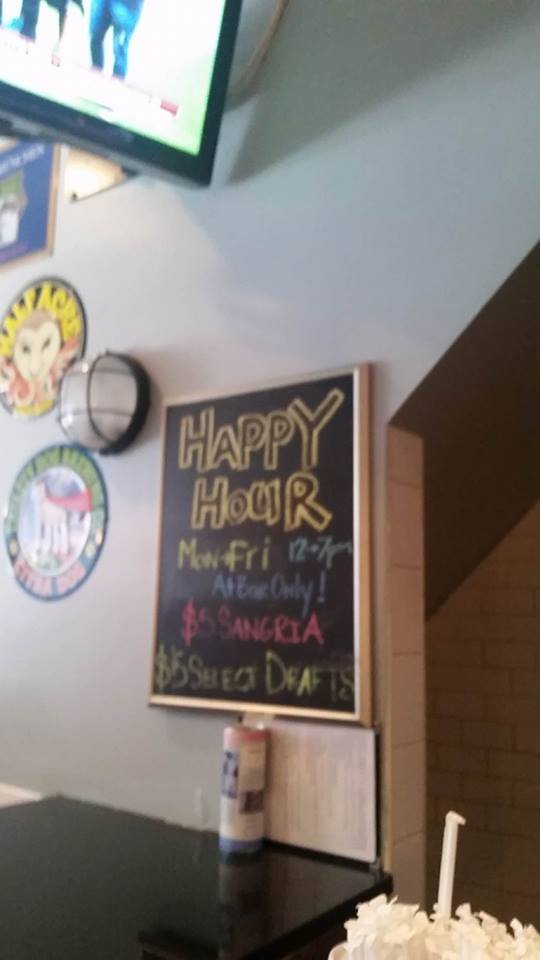 HALF ACRE
HAPPY
HOUR
Mon-Fri 12-7pm
At Bar Only!
$5 SANGRIA
$5 SELECT DRAFTS